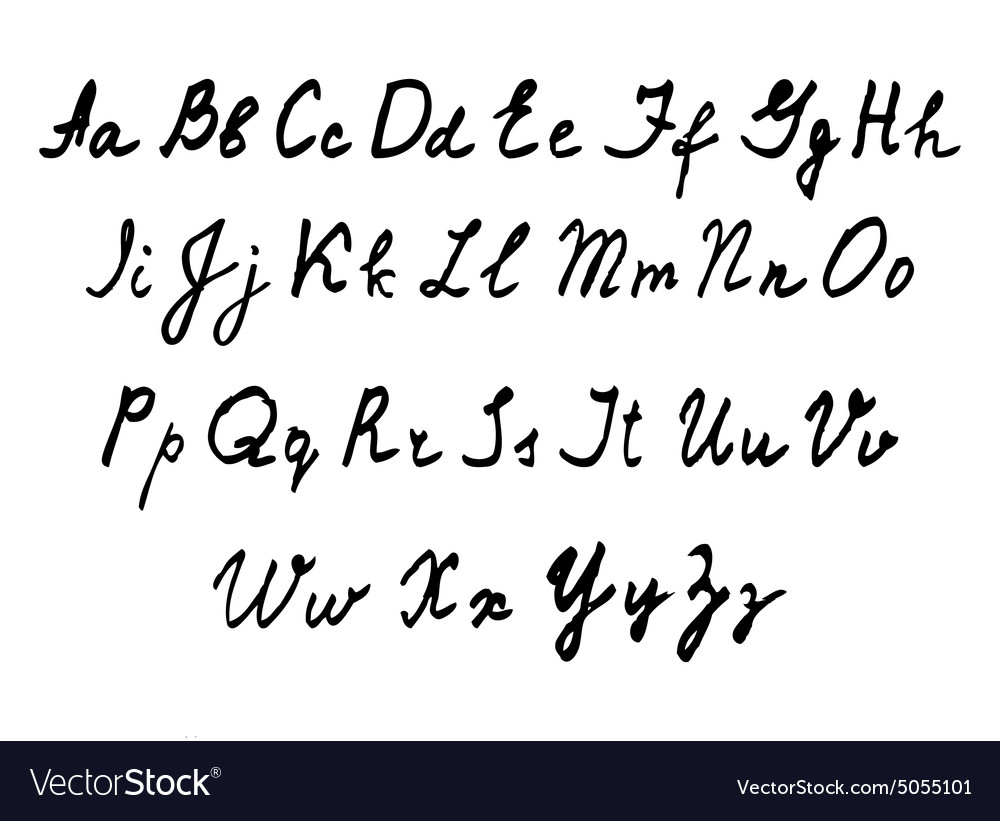 Aa Bb Cc Dd Ee Ff Gg Hh
Ii Jj Kk Ll Mm Nn Oo
Pp Qq Rr Ss Tt Uu Vv
Ww Xx Yy Zz
VectorStock®
VectorStock.com/5055101